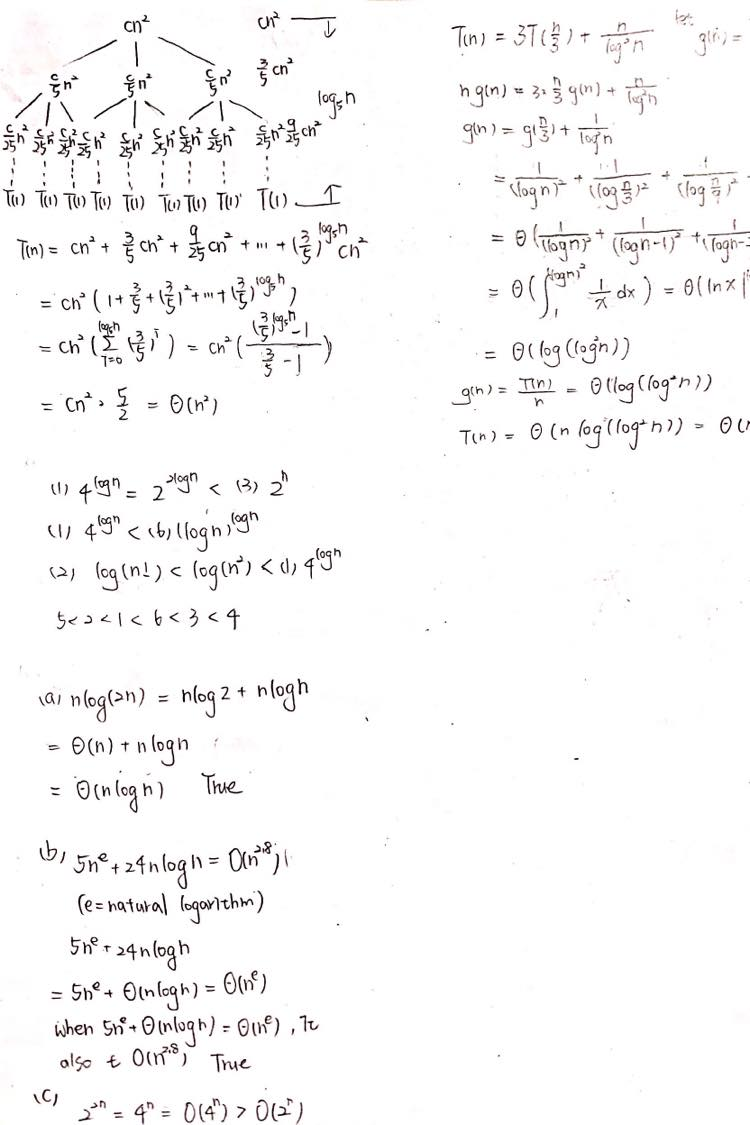 cn²
cn²
c/5 n² c/5 n² c/5 n²
3/5 cn²
log₅n
c/25 n² c/25 n² c/25 n² c/25 n² c/25 n² c/25 n² c/25 n² c/25 n² c/25 n² 9/25 cn²
T(1) T(1) T(1) T(1) T(1) T(1) T(1) T(1) T(1)
T(n) = cn² + 3/5 cn² + 9/25 cn² + ... + (3/5)^log₅n cn²
= cn² (1 + 3/5 + (3/5)² + ... + (3/5)^log₅n)
= cn² (∑_{i=0}^{log₅n} (3/5)^i) = cn² (((3/5)^log₅n - 1)/(3/5 - 1))
= cn² · 5/2 = Θ(n²)
(1) 4^logn = 2^2logn < (3) 2^n
(1) 4^logn < (6) (logn)^logn
(2) log(n!) < log(n²) < (1) 4^logn
5<2<1<6<3<4
(a) nlog(2n) = nlog2 + nlogn
= Θ(n) + nlogn
= Θ(nlogn) True
(b) 5n^e + 24nlogn = O(n^2.8)
(e=natural logarithm)
5n^e + 24nlogn
= 5n^e + Θ(nlogn) = Θ(n^e)
when 5n^e + Θ(nlogn) = Θ(n^e),
also O(n^2.8) True
(C)
2^2n = 4^n = O(4^n) > O(2^n)
T(n) = 3T(n/3) + n/log²n let g(n) =
n g(n) = 3·n/3 g(n) + n/log²n
g(n) = g(n/3) + 1/log²n
= 1/(logn)² + 1/(log n/3)² + 1/(log n/9)²
= Θ(1/(logn)² + 1/(logn-1)² + 1/(logn-
= Θ(∫_1^{(logn)²} 1/x dx) = Θ(lnx|
= Θ(log(log²n))
g(n) = T(n)/n = Θ(log(log²n))
T(n) = Θ(n log(log²n)) = Θ(n